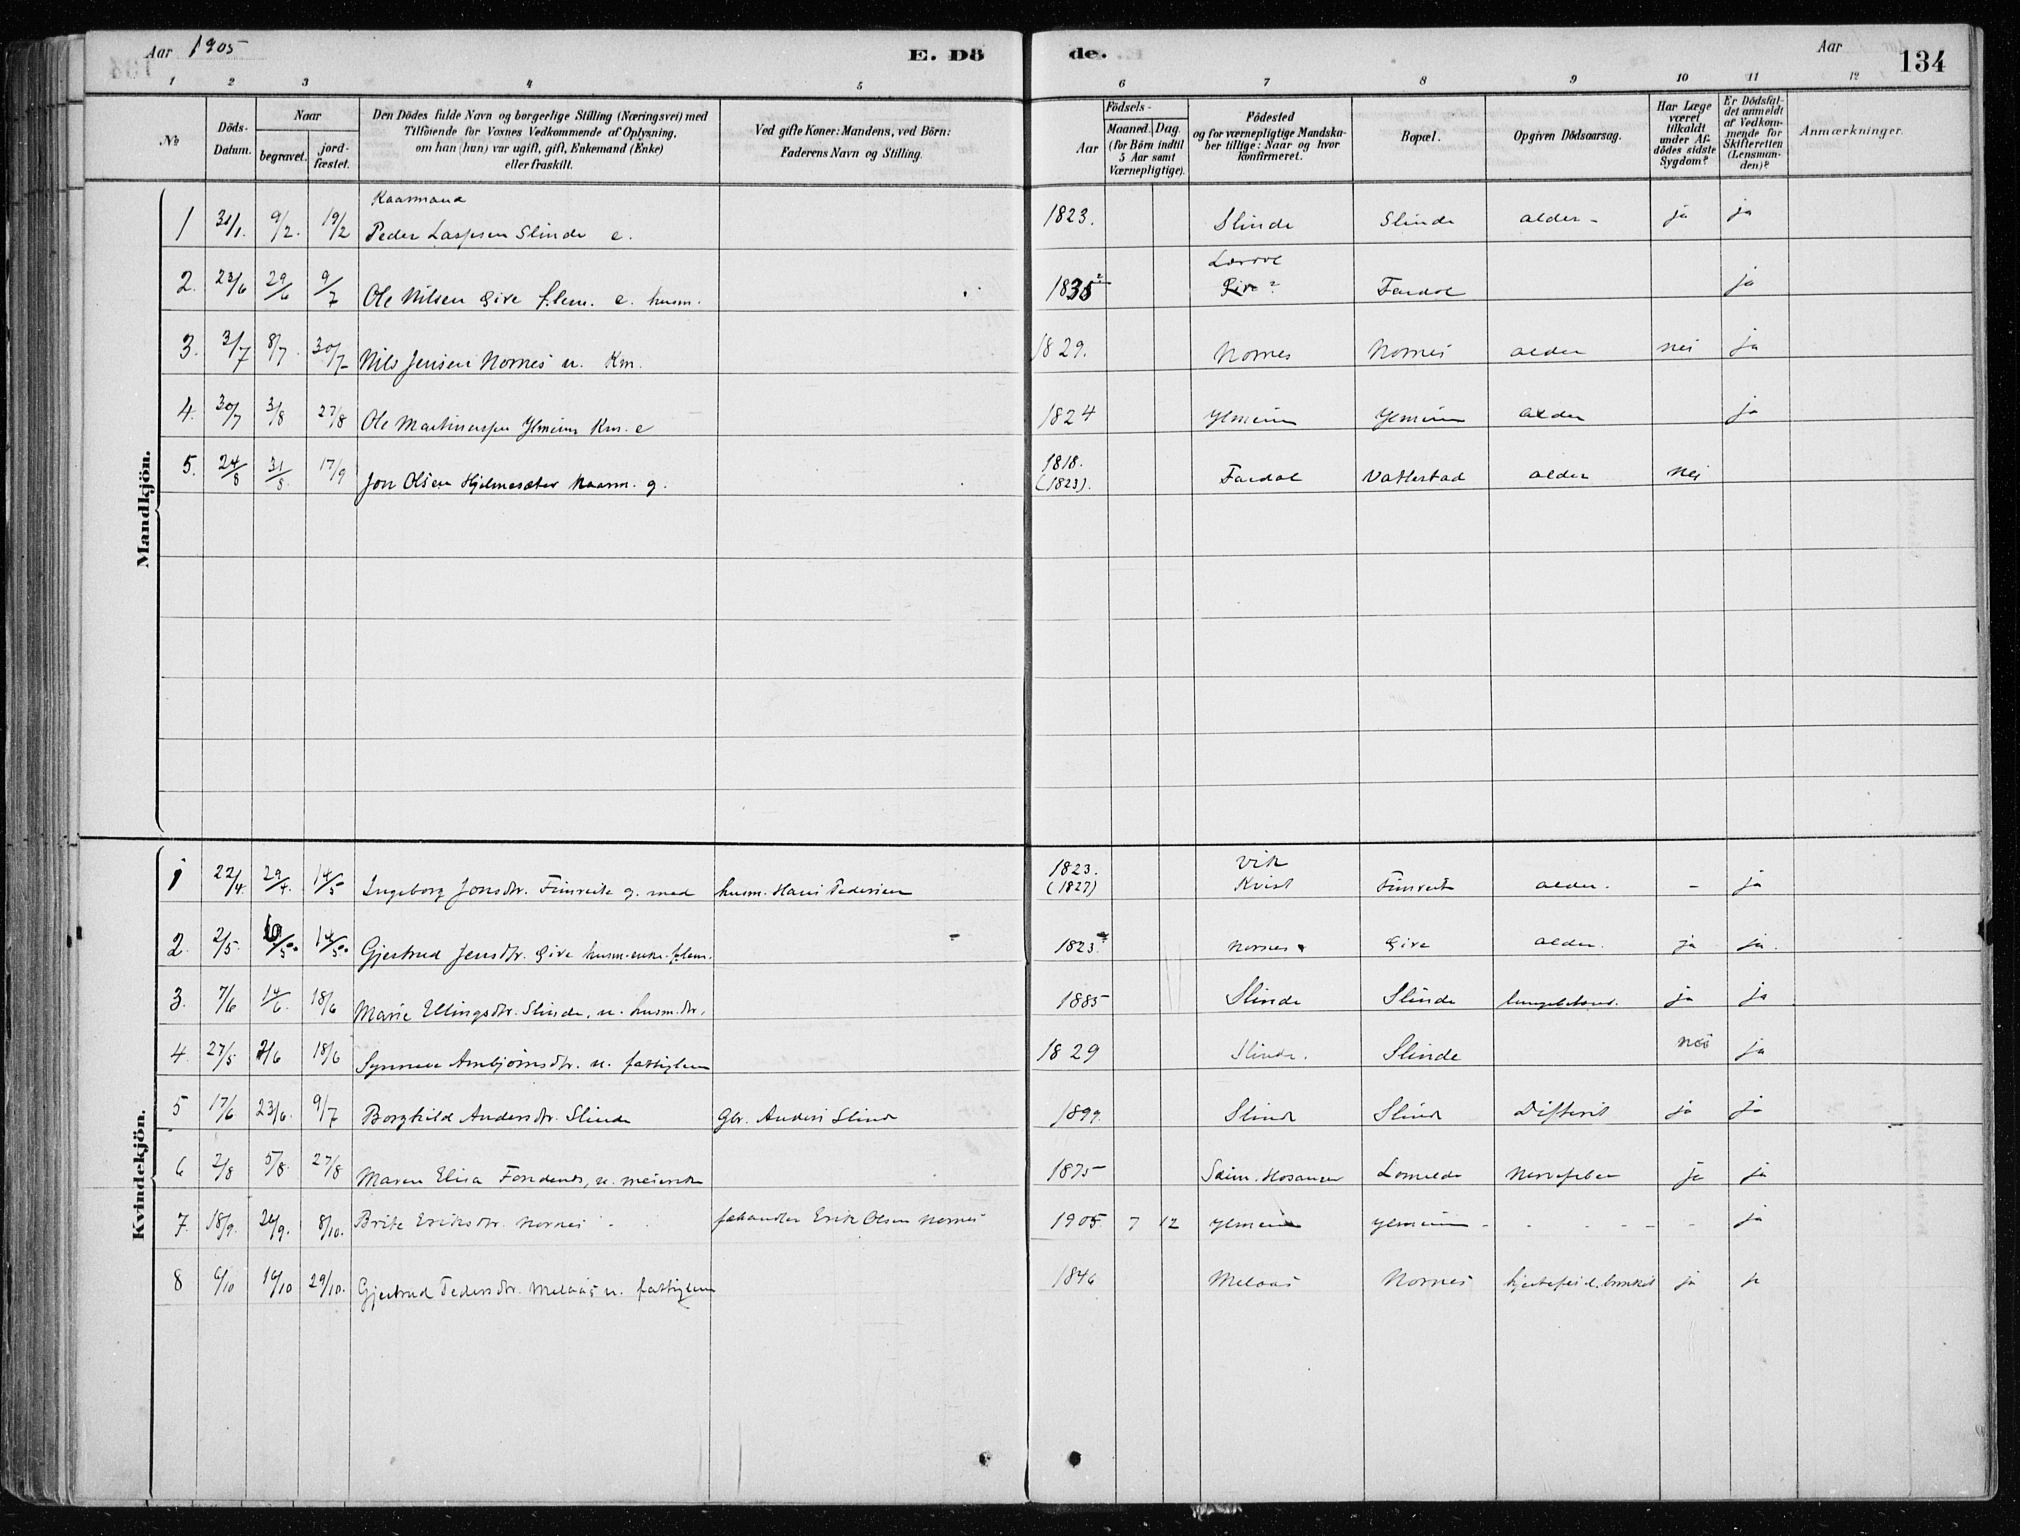 Aar 1905 E. Dö
de. Aar 134
1 2 3 4 5 6 7 8 9 10 11 12
№ Döds-Datum. Naar begravet. jord-fæstet. Den Dödes fulde Navn og borgerlige Stilling (Næringsvei) med Tilföiende for Voxnes Vedkommende af Oplysning, om han (hun) var ugift, gift, Enkemand (Enke) eller fraskilt. Ved gifte Koner: Mandens, ved Börn: Faderens Navn og Stilling.
Födsels- Aar Maaned. Dag. (for Börn indtil 5 Aar samt Værnepligtige). Födested og for værnepligtige Mandskaber tillige: Naar og hvor konfirmeret. Bopæl. Opgiven Dödsaarsag. Har Læge været tilkaldt under Afdödes sidste Sygdom? Er Dödsfaldet anmeldt af Vedkommende for Skifteretten (Lensmanden)? Anmærkninger.
Mandkjön.
Kaarmand
1 31/1. 9/2. 19/2 Peder Lassesen Slinde e. 1823. Slinde Slinde alder - ja ja
Lærdal
2. 23/6 29/6 9/7 Ole Nilsen Eire f.lem. e. husm. 1835 Eire? Fardal ja
3. 3/7 8/7. 30/7 Nils Jensen Nornes u. Km. 1829. Nornes Nornes alder nei ja
4. 30/7 3/8 27/8 Ole Martinussen Ylmeim Km. e 1824 Ylmeim Ylmeim alder ja
5. 24/8 31/8 17/9 Jon Olsen Hjelmesæter kaarm. g. 1818. (1823). Fardal Vatlestad alder nei
Kvindekjön.
Vik
1 22/4. 29/4. 14/5 Ingeborg Jonsdtr. Fimreite g. med husm. Hans Pedersen 1823. (1827) Kvist Fimreit alder. - ja
2. 2/5. 6/5. 14/5. Gjertrud Jensdtr. Eire husm.enke. f.lem. 1823 Nornes Eire alder. ja ja.
3. 7/6 14/6. 18/6 Marie Ellingsdtr. Slinde, u. husm.dtr. 1885 Slinde Slinde ja ja
4. 27/5 2/6 18/6 Synneve Arnbjørnsdtr. u. fattiglem 1829 Slinde. Slinde nei ja
5 17/6 23/6. 9/7 Borghild Andersdtr. Slinde Gbr. Anders Slinde 1899. Slinde Slinde Difterit ja ja
6 2/8 5/8. 27/8 Maren Elisa Fondenes, u. meierske 1875 Hosanger Lomelde nervefeber ja ja
7. 18/9. 24/9. 8/10. Brite Eriksdtr. Nornes - Erik Olsen Nornes 1905. 7 12 Ylmeim Ylmeim - - - - - - ja
8 6/10 14/10 29/10. Gjertrud Pedersdtr. Melaas u. fattiglem 1846 Melaas Nornes ja ja